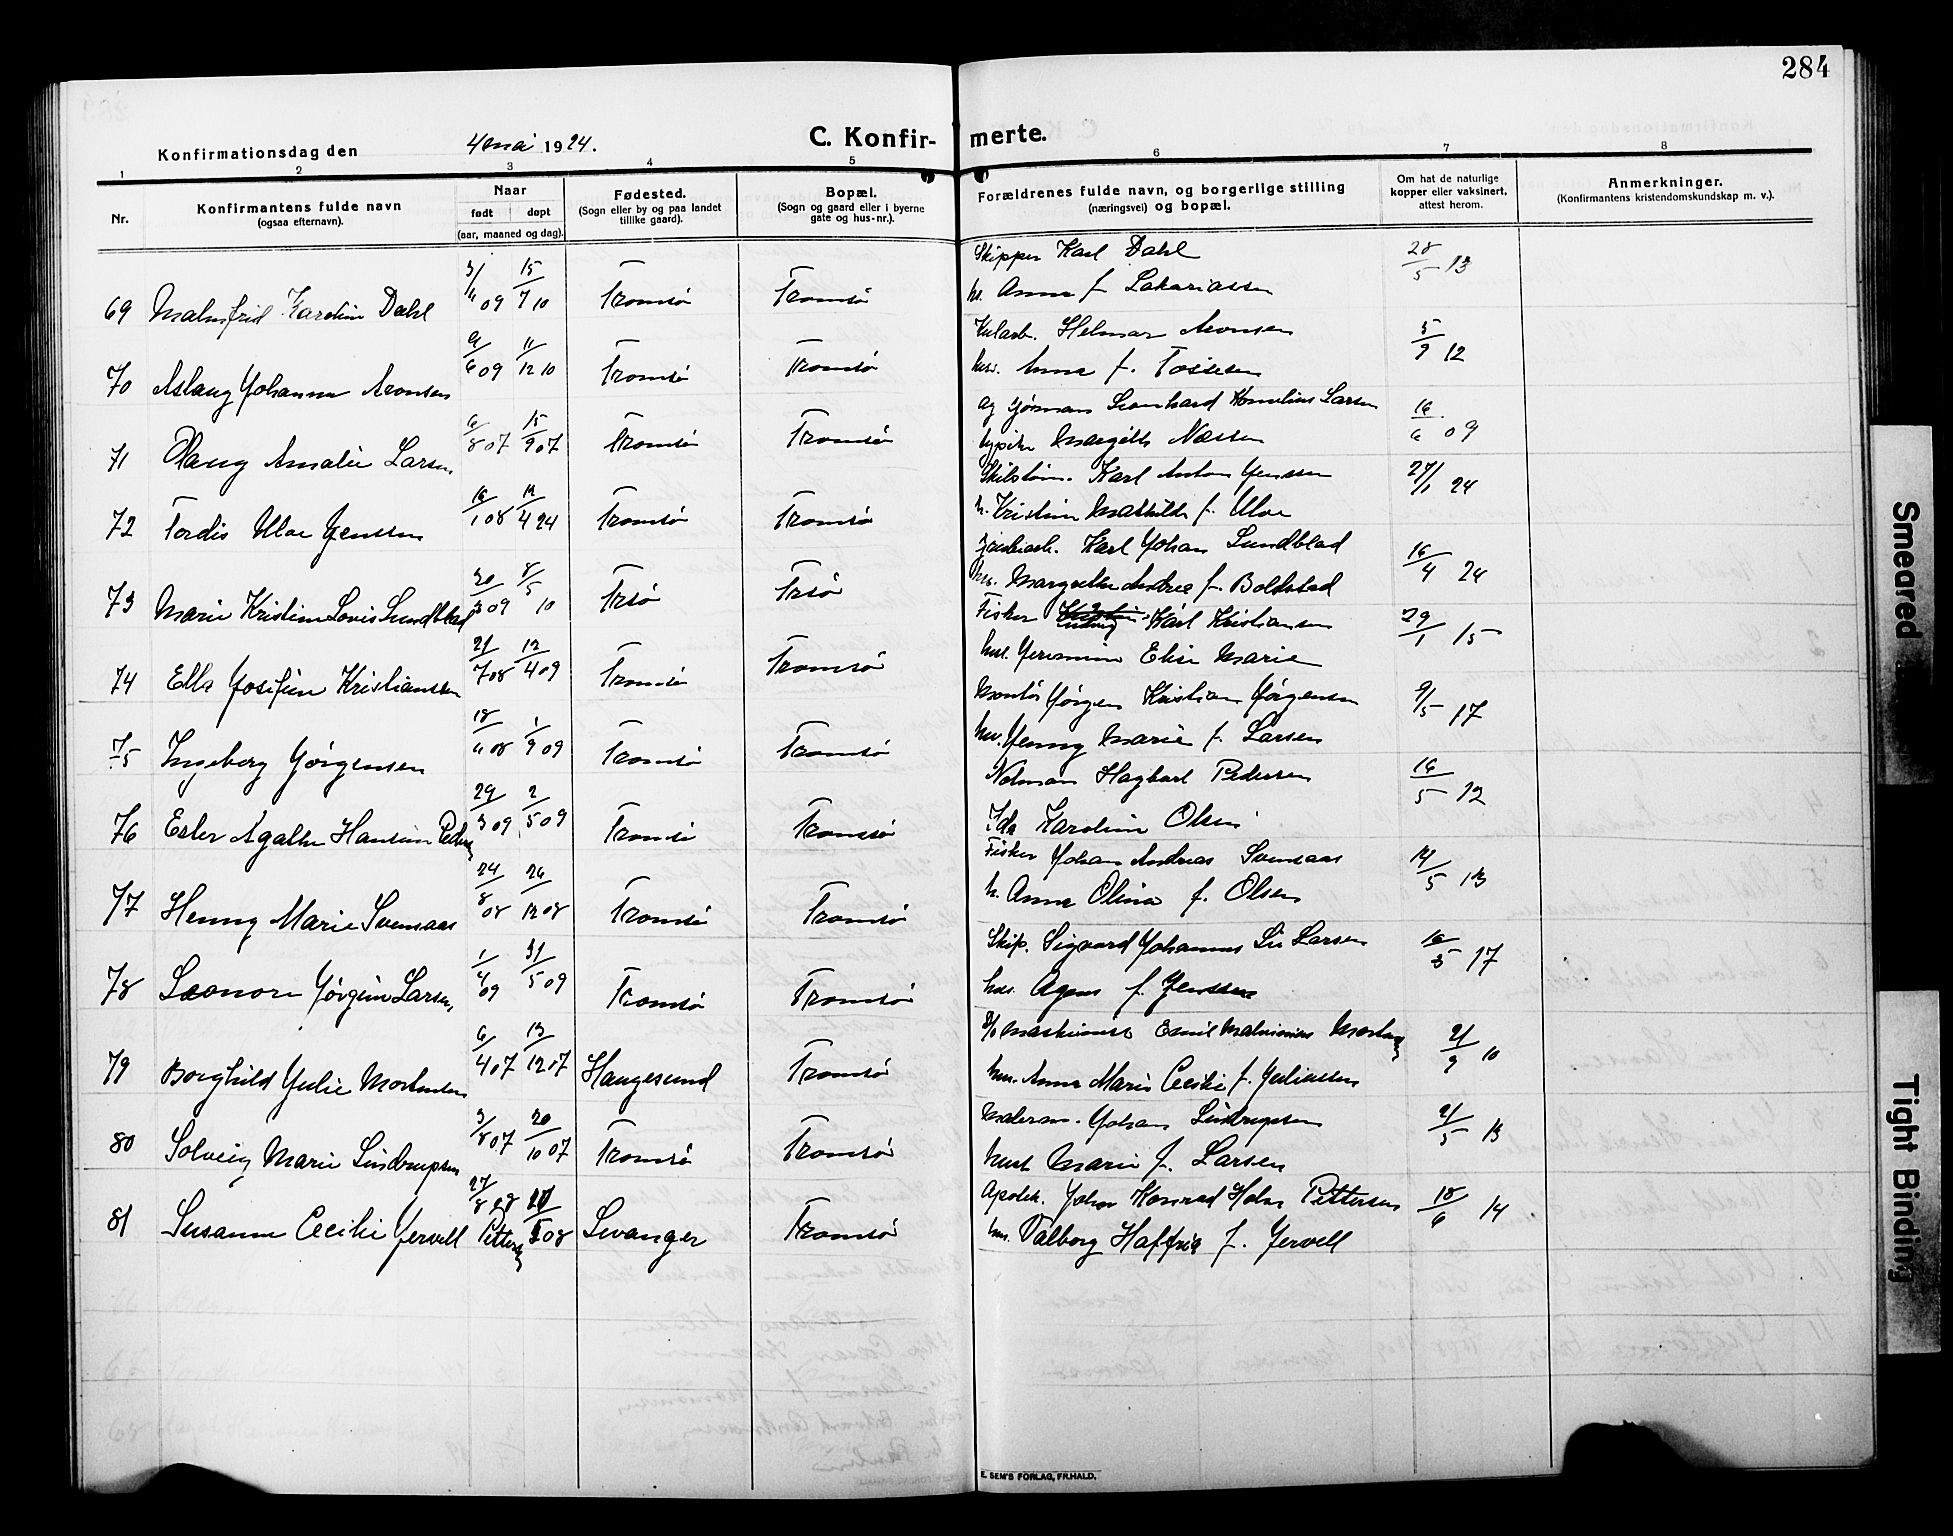 284
Konfirmationsdag den 4 mai 1924.
C. Konfir- merte.
1 2 3 4 5 6 7 8
Nr.
Konfirmantens fulde navn
(ogsaa efternavn).
Naar
født døpt
(aar, maaned og dag).
Fødested.
(Sogn eller by og paa landet
tillike gaard).
Bopæl.
(Sogn og gaard eller i byerne
gate og hus-nr.).
Forældrenes fulde navn, og borgerlige stilling
(næringsvei) og bopæl.
Om hat de naturlige
kopper eller vaksinert,
attest herom.
Anmerkninger.
(Konfirmantens kristendomskundskap m. v.).
Skipper Karl Dahl
69 Malmfrid Karolin Dahl 3/6 09 15/7 10 Tromsø Tromsø 28/5 13
hu. Anna f. Zakariassen
Helmar Aronsen
70 Aslaug Johanna Aronsen 9/6 09 11/12 10 Tromsø Tromsø 5/9 12
hust. Anna f. Tøssesen
ag Gørman Leonhard Kornelius Larsen
71 Olaug Amalie Larsen 6/8 07 15/9 07 Tromsø Tromsø 16/6 09
Margith Næssen
Karl Anton Jenssen
72 Tordis Uloe Jenssen 16/1 08 12/4 24 Tromsø Tromsø 27/1 24
h. Kristine Mathilde f. Uloe
Karl Johan Sundblad
73 Marie Kristine Lovis Sundblad 20/3 09 8/5 10 Trsø Trsø 16/4 24
hu. Margrethe Andrea f. Boltstad
Fisker Ludvig Karl Kristiansen
74 Ella Josefine Kristianssen 21/7 08 12/4 09 Tromsø Tromsø 29/1 15
hust. Jensmine Elise Marie
Montør Jørgen Kristian Jørgensen
75 Ingeborg Jørgensen 18/6 08 1/9 09 Tromsø Tromsø 9/5 17
hu. Jenny Marie f. Larsen
Notman Hagbart Pedersen
76 Ester Agathe Hansine Peders 29/3 09 2/5 09 Tromsø Tromsø 16/5 12
Ida Karoline Olsen
Fisker Johan Andreas Svensaas
77 Henny Marie Svensaas 24/8 08 26/12 08 Tromsø Tromsø 14/5 13
h. Anna Olina f. Olsen
Skip. Sigvard Johannes Lie Larsen
78 Leonore Jørgine Larsen 1/4 09 31/5 09 Tromsø Tromsø 16/5 17
hus. Agnes f. Jenssen
Maskinist Emil Mortensen
79 Borghild Julie Mortensen 6/4 07 13/12 07 Haugesund Tromsø 21/9 10
hus. Anna Marie Cecilie f. Juliassen
Malerm. Johan Lindrupsen
80 Solveig Marie Lindrupsen 3/8 07 20/10 07 Tromsø Tromsø 21/5 13
hust Marie f. Larsen
Apotek. Johan Konrad Holm Pettersen
81 Susanne Cecilie Jervell Pettersen 27/8 08 Levanger Tromsø 18/6 14
hus. Valborg Haffria f. Jervell
E. SEM'S FORLAG, FR.HALD.
Smeared
Tight Binding